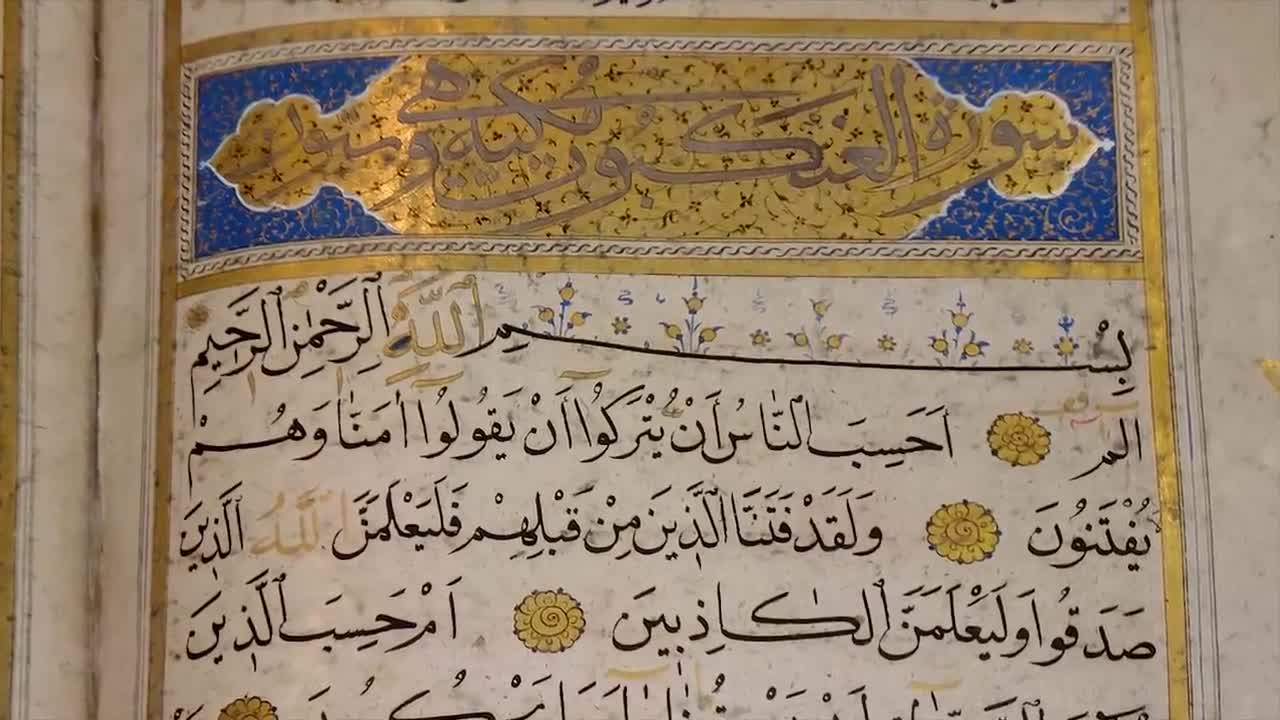 سورة العنكبوت مكية وهي
بِسْمِ اللَّهِ الرَّحْمٰنِ الرَّحِيمِ
الم اَحَسِبَ النَّاسُ أَنْ يُتْرَكُوا أَنْ يَقُولُوا اٰمَنَّا وَهُمْ
يُفْتَنُونَ وَلَقَدْ فَتَنَّا الَّذِينَ مِنْ قَبْلِهِمْ فَلَيَعْلَمَنَّ اللَّهُ الَّذِينَ
صَدَقُوا وَلَيَعْلَمَنَّ الْكَاذِبِينَ اَمْ حَسِبَ الَّذِينَ